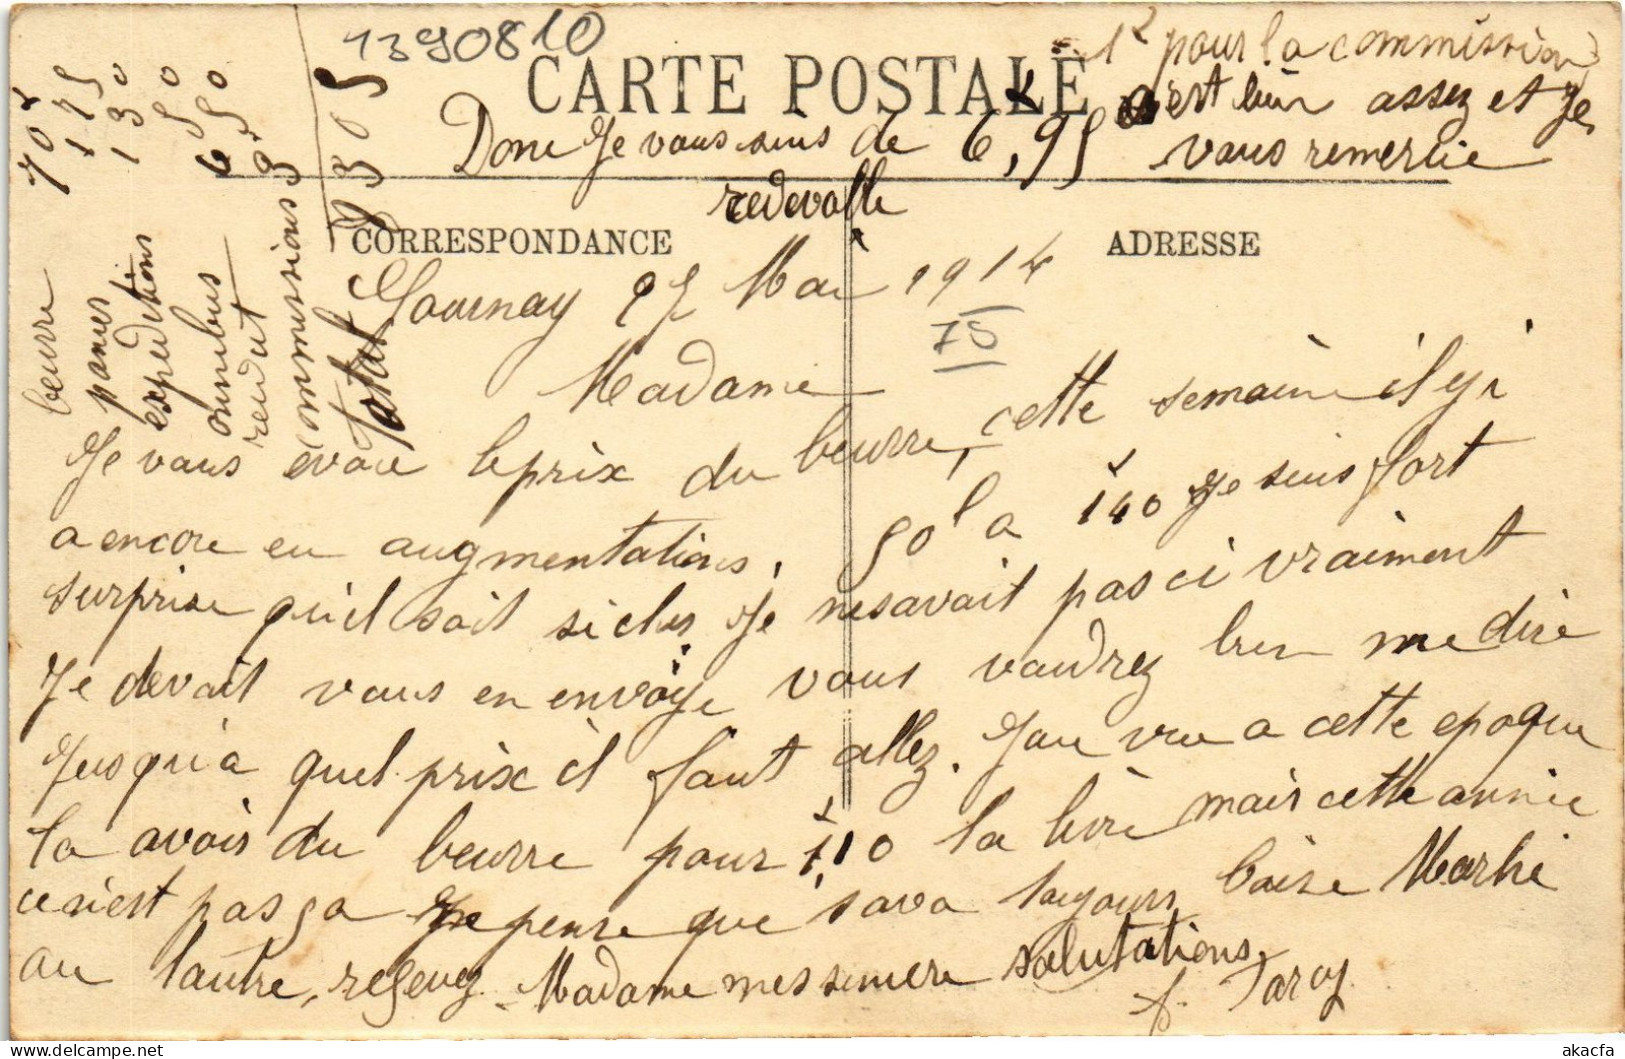 1390810
CARTE POSTALE
1f pour la commission
c'est bien assez et Je
Donc Je vous suis de 6,95 vous remercie
redevable
CORRESPONDANCE
ADRESSE
beurre 70f
panier 1 75
expeditions 1 30
omnibus 50
reduit 6 50
commissions 3
Total 83 05
Gournay 25 Mai 1914
75
Madame
Je vous evoie le prix du beurre, cette semaine il y i
a encore eu augmentations, 50l a 140 Je suis fort
surprise qu'il soit si cher, Je nesavait pas ci vraiment
Je devait vous en envoye vous voudrez bien me dire
Jusqu'a quel prix il faut allez. J'au vue a cette epoque
la avoir du beurre pour 1,10 la livre mais cette annee
ce n'est pas ça Je pense que sava toujours baise Marhé
au lautre, resevez Madame mes sincere salutations
f. Taroy
akacfa